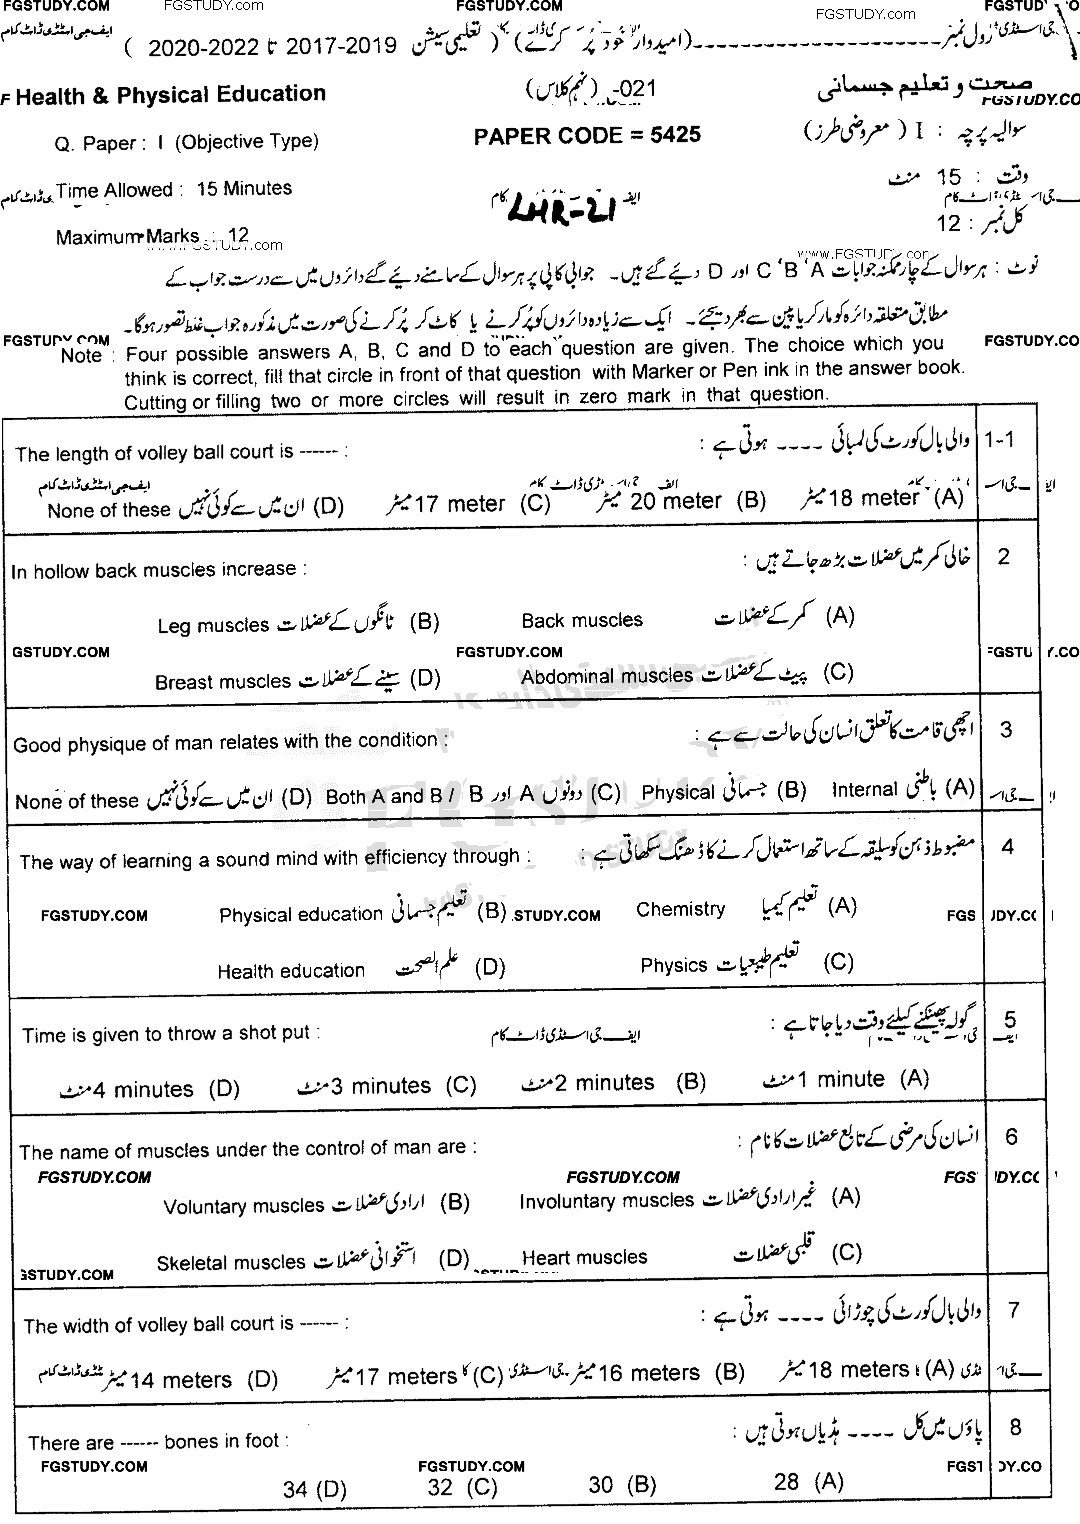 FGSTUDY.COM FGSTUDY.com FGSTUDY.COM FGSTUDY.com
ایف جی اسٹڈی ڈاٹ کام
رول نمبر --------------------(امیدوار خود پُر کرے) ( تعلیمی سیشن 2017-2019 تا 2020-2022 )
Health & Physical Education (نہم کلاس) -021 صحت و تعلیم جسمانی
FGSTUDY.CO
Q. Paper : I (Objective Type) PAPER CODE = 5425 سوالیہ پرچہ : I ( معروضی طرز)
Time Allowed : 15 Minutes وقت : 15 منٹ
LHR-21
Maximum Marks : 12 کل نمبر : 12
www.FGSTUDY.com
نوٹ : ہر سوال کے چار ممکنہ جوابات A ‘B ‘C اور D دیئے گئے ہیں۔ جوابی کاپی پر ہر سوال کے سامنے دیئے گئے دائروں میں سے درست جواب کے
مطابق متعلقہ دائرہ کو مارکر یا پین سے بھر دیجئے۔ ایک سے زیادہ دائروں کو پُر کرنے یا کاٹ کر پُر کرنے کی صورت میں مذکورہ جواب غلط تصور ہوگا۔
FGSTUDY.COM FGSTUDY.CO
Note : Four possible answers A, B, C and D to each question are given. The choice which you
think is correct, fill that circle in front of that question with Marker or Pen ink in the answer book.
Cutting or filling two or more circles will result in zero mark in that question.
The length of volley ball court is ------ : والی بال کورٹ کی لمبائی ---- ہوتی ہے : 1-1
ایف جی اسٹڈی ڈاٹ کام
None of these ان میں سے کوئی نہیں (D) 17 meter میٹر (C) 20 meter میٹر (B) 18 meter میٹر (A)
In hollow back muscles increase : خالی کمر میں عضلات بڑھ جاتے ہیں : 2
Leg muscles ٹانگوں کے عضلات (B) Back muscles کمر کے عضلات (A)
GSTUDY.COM FGSTUDY.COM
Breast muscles سینے کے عضلات (D) Abdominal muscles پیٹ کے عضلات (C)
Good physique of man relates with the condition : اچھی قامت کا تعلق انسان کی حالت سے ہے : 3
None of these ان میں سے کوئی نہیں (D) Both A and B / B اور A دونوں (C) Physical جسمانی (B) Internal باطنی (A)
The way of learning a sound mind with efficiency through : مضبوط ذہن کو سلیقہ کے ساتھ استعمال کرنے کا ڈھنگ سکھاتی ہے : 4
Physical education تعلیم جسمانی (B) Chemistry تعلیم کیمیا (A)
FGSTUDY.COM .STUDY.COM
Health education علم الصحت (D) Physics تعلیم طبیعیات (C)
Time is given to throw a shot put : گولہ پھینکنے کیلئے وقت دیا جاتا ہے : 5
ایف جی اسٹڈی ڈاٹ کام
4 minutes منٹ (D) 3 minutes منٹ (C) 2 minutes منٹ (B) 1 minute منٹ (A)
The name of muscles under the control of man are : انسان کی مرضی کے تابع عضلات کا نام : 6
FGSTUDY.COM FGSTUDY.COM
Voluntary muscles ارادی عضلات (B) Involuntary muscles غیر ارادی عضلات (A)
Skeletal muscles استخوانی عضلات (D) Heart muscles قلبی عضلات (C)
GSTUDY.COM
The width of volley ball court is ------ : والی بال کورٹ کی چوڑائی ---- ہوتی ہے : 7
14 meters میٹر (D) 17 meters میٹر (C) 16 meters میٹر (B) 18 meters میٹر (A)
There are ------ bones in foot : پاؤں میں کل ---- ہڈیاں ہوتی ہیں : 8
FGSTUDY.COM FGSTUDY.COM
34 (D) 32 (C) 30 (B) 28 (A)